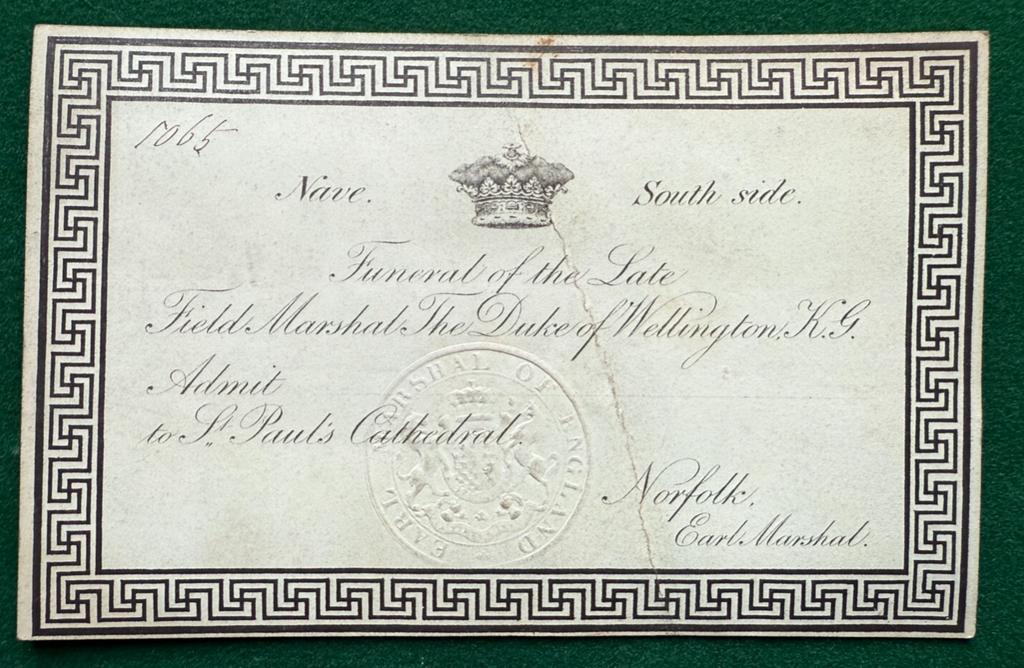 1065
Nave. South side.
Funeral of the Late
Field Marshal The Duke of Wellington, K.G.
Admit
to St. Paul's Cathedral.
EARL MARSHAL OF ENGLAND
Norfolk,
Earl Marshal.